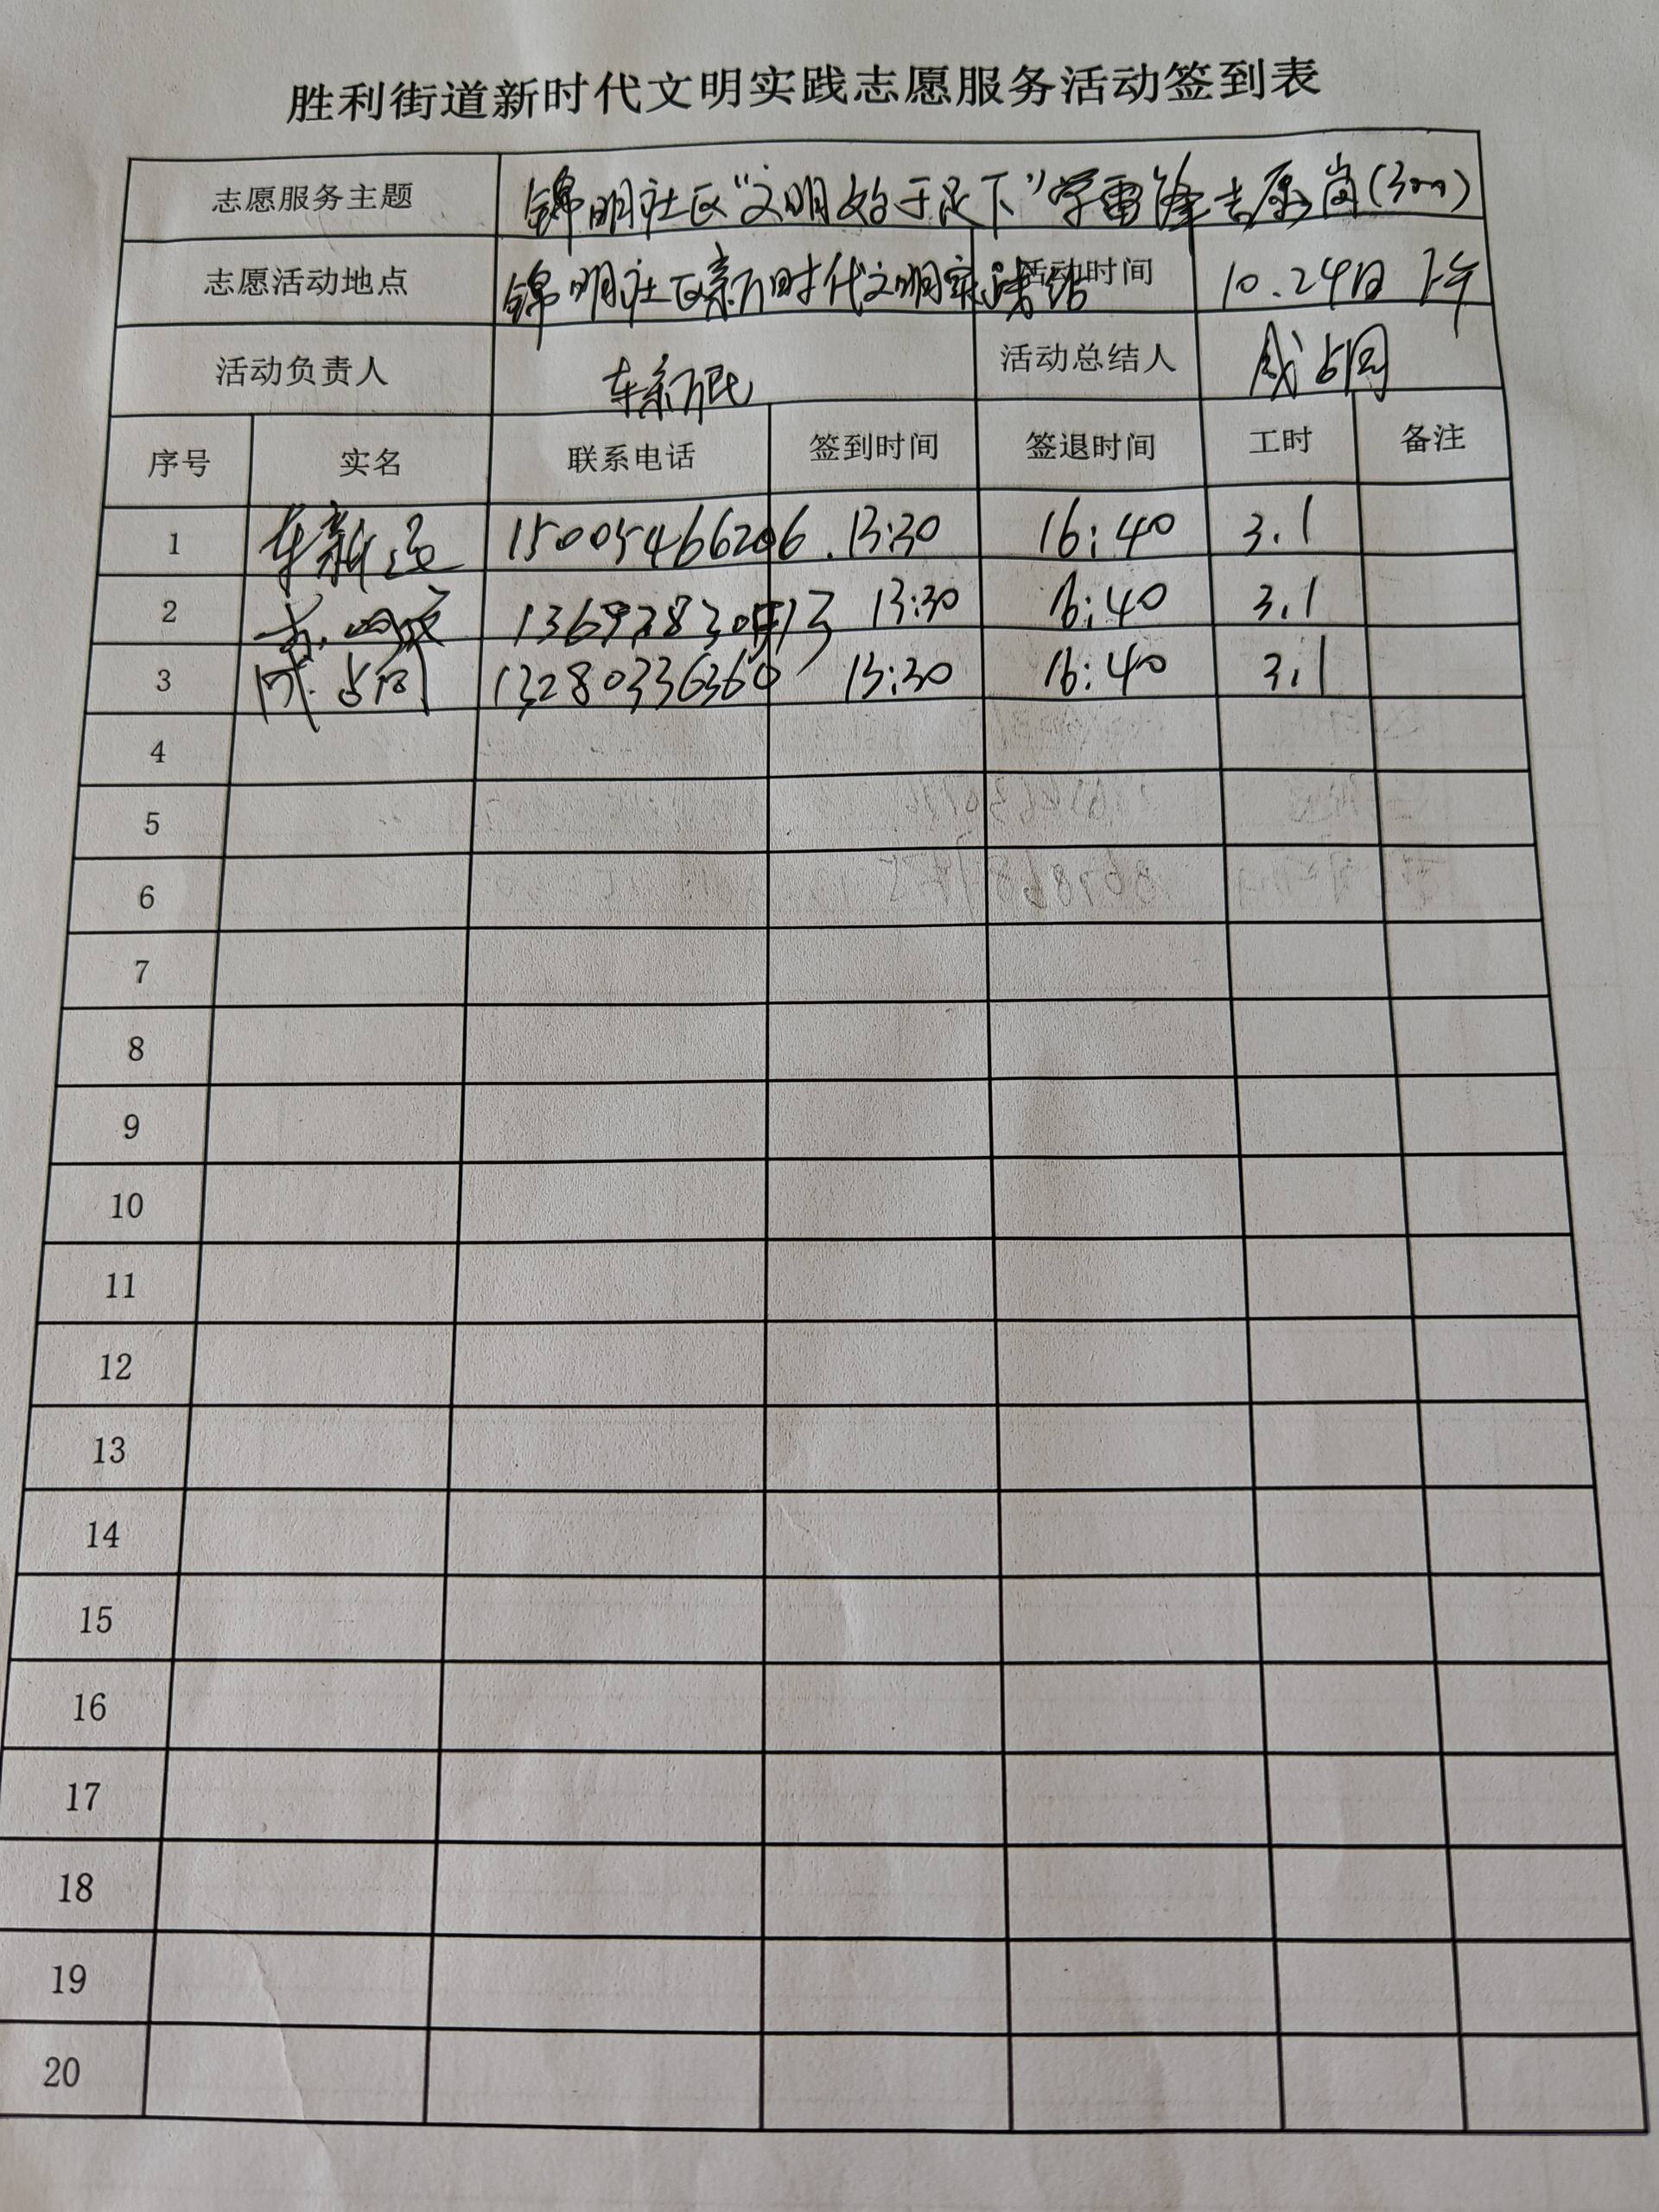 胜利街道新时代文明实践志愿服务活动签到表
志愿服务主题 锦明社区“文明始于足下”学雷锋志愿岗(300)
志愿活动地点 锦明社区新时代文明实践站 活动时间 10.24日 下午
活动负责人 车新民 活动总结人 成占同
序号 实名 联系电话 签到时间 签退时间 工时 备注
1 车新民 15005466206 13:30 16:40 3.1
2 13:30 16:40 3.1
3 成占同 13280336360 13:30 16:40 3.1
4
5
6
7
8
9
10
11
12
13
14
15
16
17
18
19
20